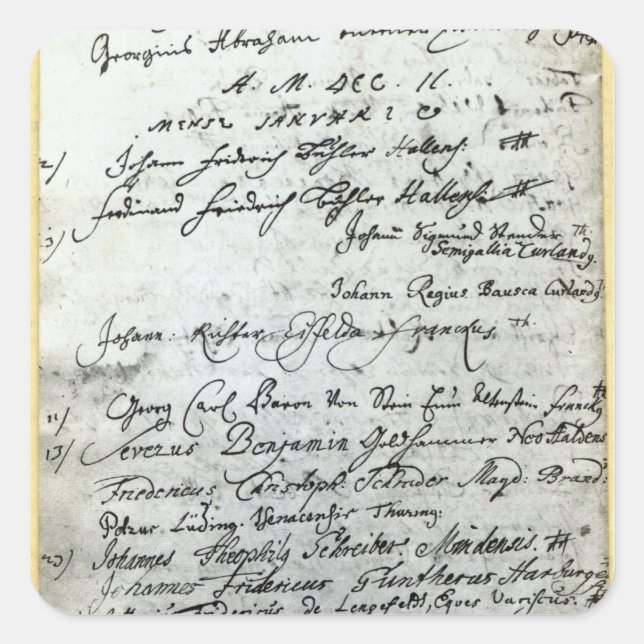 Georgius Abraham
A. M. DCC. II.
MENSE IANVARIO
2) Johann Friderich Bühler Hallens: #
Ferdinand Friedrich Bühler Hallens: #
3) Johann Sigmund Stender Th.
Semigallia Curlandg.
Johann Regius Bausca Curlandg.
Johann. Richter Eisfelda Franckus Th.
11) Georg Carl Baron Von Stein Altenstein Franckg #
13) Severus Benjamin Goldhammer Neo Haldens
Fridericus Christoph: Schrader Magd: Brand:
Petrus Lüding. Venacensis Thuring:
23) Johannes Theophilg Schreiber. Mindensis. #
Johannes Fridericus Guntherus Harburge
Fridericus de Lengefeldt, Eques Variscus: